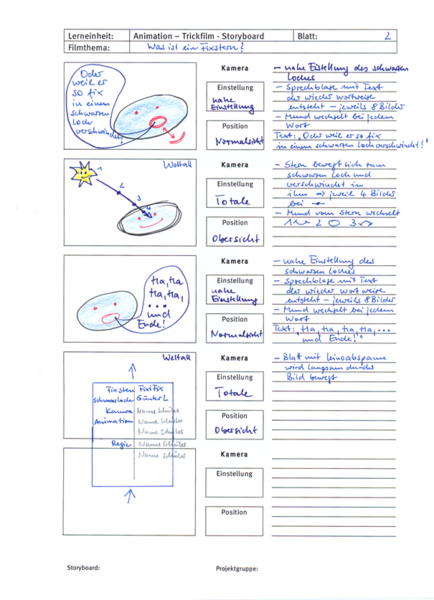 Lerneinheit: Animation – Trickfilm - Storyboard Blatt: 2
Filmthema: Was ist ein Fixstern?
Oder
weil er
so fix
in einem
schwarzen
Loch
verschwindet!
Kamera
Einstellung
nahe
Einstellung
Position
Normalsicht
- nahe Einstellung des schwarzen
Loches
- Sprechblase mit Text
der wieder wortweise
entsteht - jeweils 8 Bilder
- Mund wechselt bei jedem
Wort
Text: "Oder weil er so fix
in einem schwarzen Loch verschwindet!"
Weltall
1
2
3
4
Kamera
Einstellung
Totale
Position
Obersicht
- Stern bewegt sich zum
schwarzen Loch und
verschwindet in
ihm → jeweil 4 Bilder
bei
- Mund vom Stern wechselt
1 2 3
Ha, ha
ha, ha,
...
und
Ende!
Kamera
Einstellung
nahe
Einstellung
Position
Normalsicht
- nahe Einstellung des
schwarzen Loches
- Sprechblase mit Text
der wieder wortweise
entsteht - jeweils 8 Bilder
- Mund wechselt bei jedem
Wort
Text: "Ha, ha, ha, ha, ...
und Ende!"
Weltall
Fixstern FixiFix
schwarzes Loch Günter L
Kamera Name Schüler
Animation Name Schüler
Name Schüler
Regie Name Schüler
Name Schüler
Kamera
Einstellung
Totale
Position
Obersicht
- Blatt mit
wird langsam durchs
Bild bewegt
Kamera
Einstellung
Position
Storyboard: Projektgruppe: